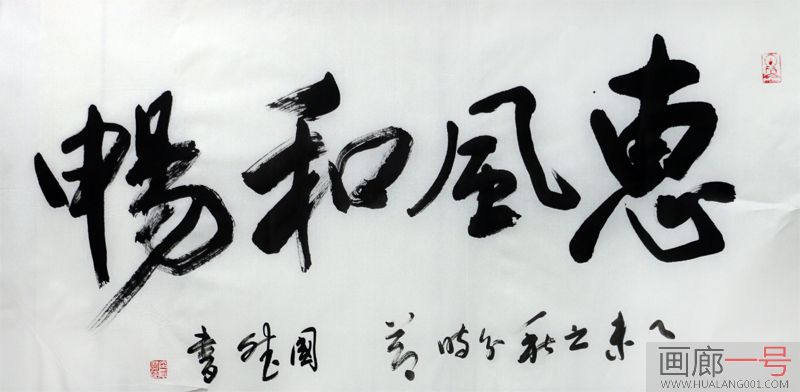 惠風和暢
乙未之秋分時節 國 書
画廊一号
WWW.HUALANG001.COM